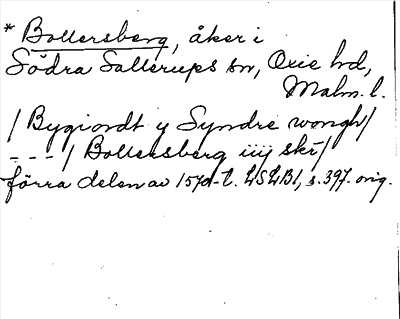 * Bollersberg, åker i
Södra Sallerups sn, Oxie hd,
Malm. l.
/ Bygiordt y Syndre wongh /
- - - / Bollersberg iiij skr /
förra delen av 1570-t. LSLB1, s. 397. orig.